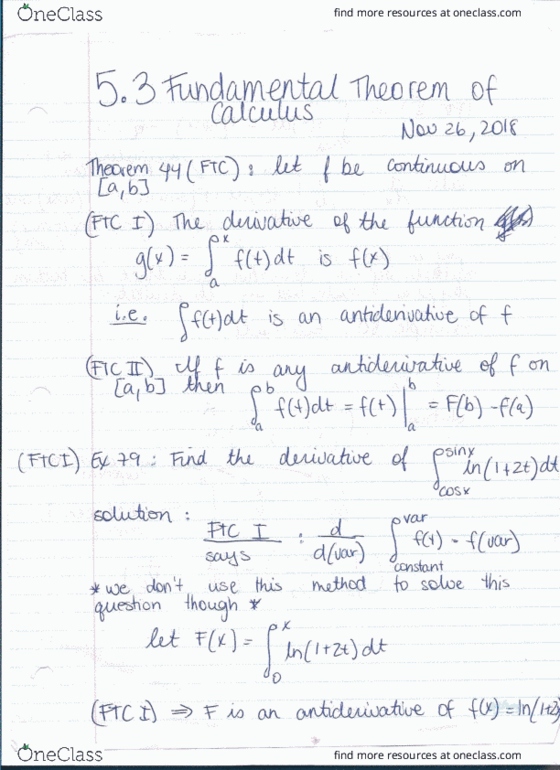 OneClass find more resources at oneclass.com
5.3 Fundamental Theorem of
Calculus
Nov 26, 2018
Theorem 44 (FTC): let f be continuous on
[a,b]
(FTC I) The derivative of the function
g(x) = ∫ₐˣ f(t)dt is f(x)
i.e. ∫f(t)dt is an antiderivative of f
(FTC II) If f is any antiderivative of f on
[a,b] then ∫ₐᵇ f(t)dt = f(t)|ₐᵇ = F(b) - f(a)
(FTC I) Ex 79: Find the derivative of ∫_cosx^sinx ln(1+2t)dt
solution:
FTC I says : d/d(var) ∫_constant^var f(t) = f(var)
* we don't use this method to solve this
question though *
let F(x) = ∫₀ˣ ln(1+2t)dt
(FTC I) ⇒ F is an antiderivative of f(x) = ln(1+2
OneClass find more resources at oneclass.com